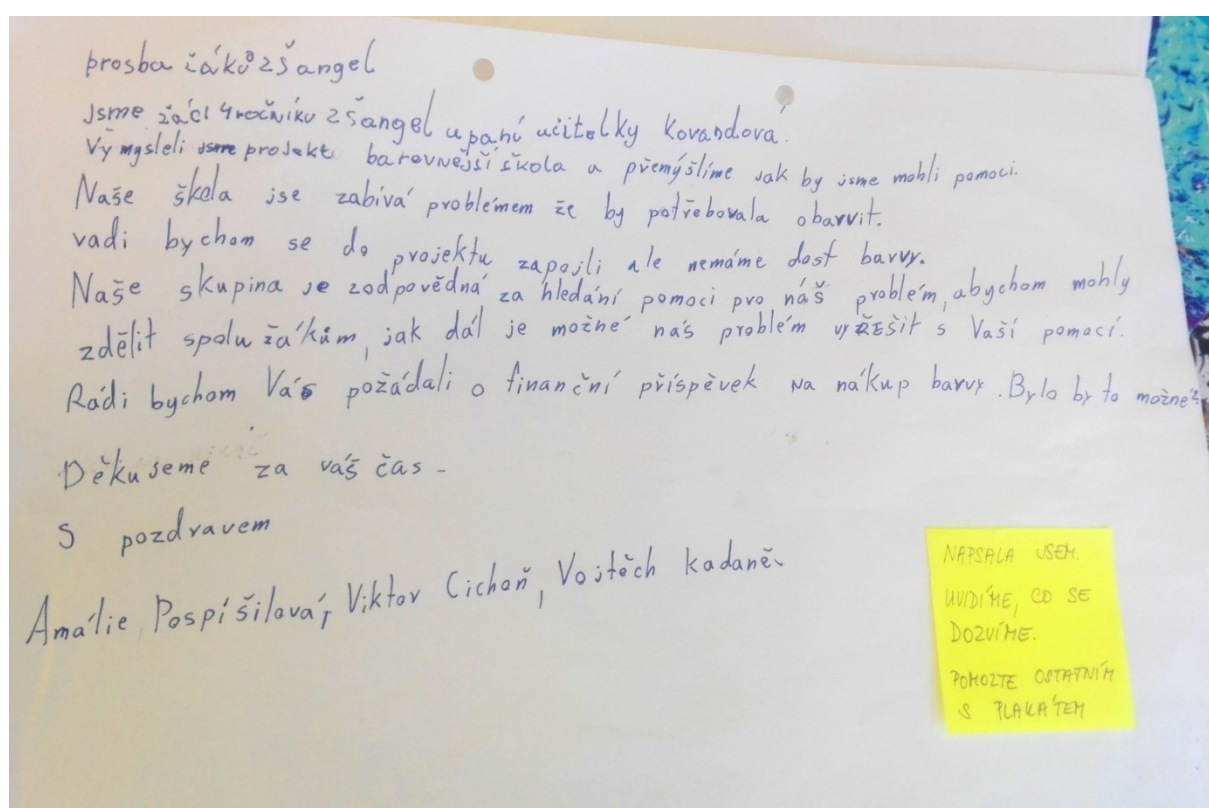 prosba žáků zš angel
Jsme žáci 4ročníku zšangel upaní učitelky Kovandová.
Vymysleli jsme projekt barevnější škola a přemýšlíme jak by jsme mohli pomoci.
Naše škola jse zabívá problémem že by potřebovala obarvit.
vadi bychom se do projektu zapojli ale nemáme dost barvy.
Naše skupina je zodpovědná za hledání pomoci pro náš problém, abychom mohly
zdělit spolužákům, jak dál je možné náš problém vyŘEšit s Vaší pomocí.
Rádi bychom Vás požádali o finanční příspěvek na nákup barvy. Bylo by to možné?
Děkujeme za váš čas -
S pozdravem
Amálie Pospíšilová, Viktor Cichoň, Vojtěch kadaně.
NAPSALA JSEM.
UVIDÍME, CO SE
DOZVÍME.
POMOZTE OSTATNÍM
S PLAKÁTEM